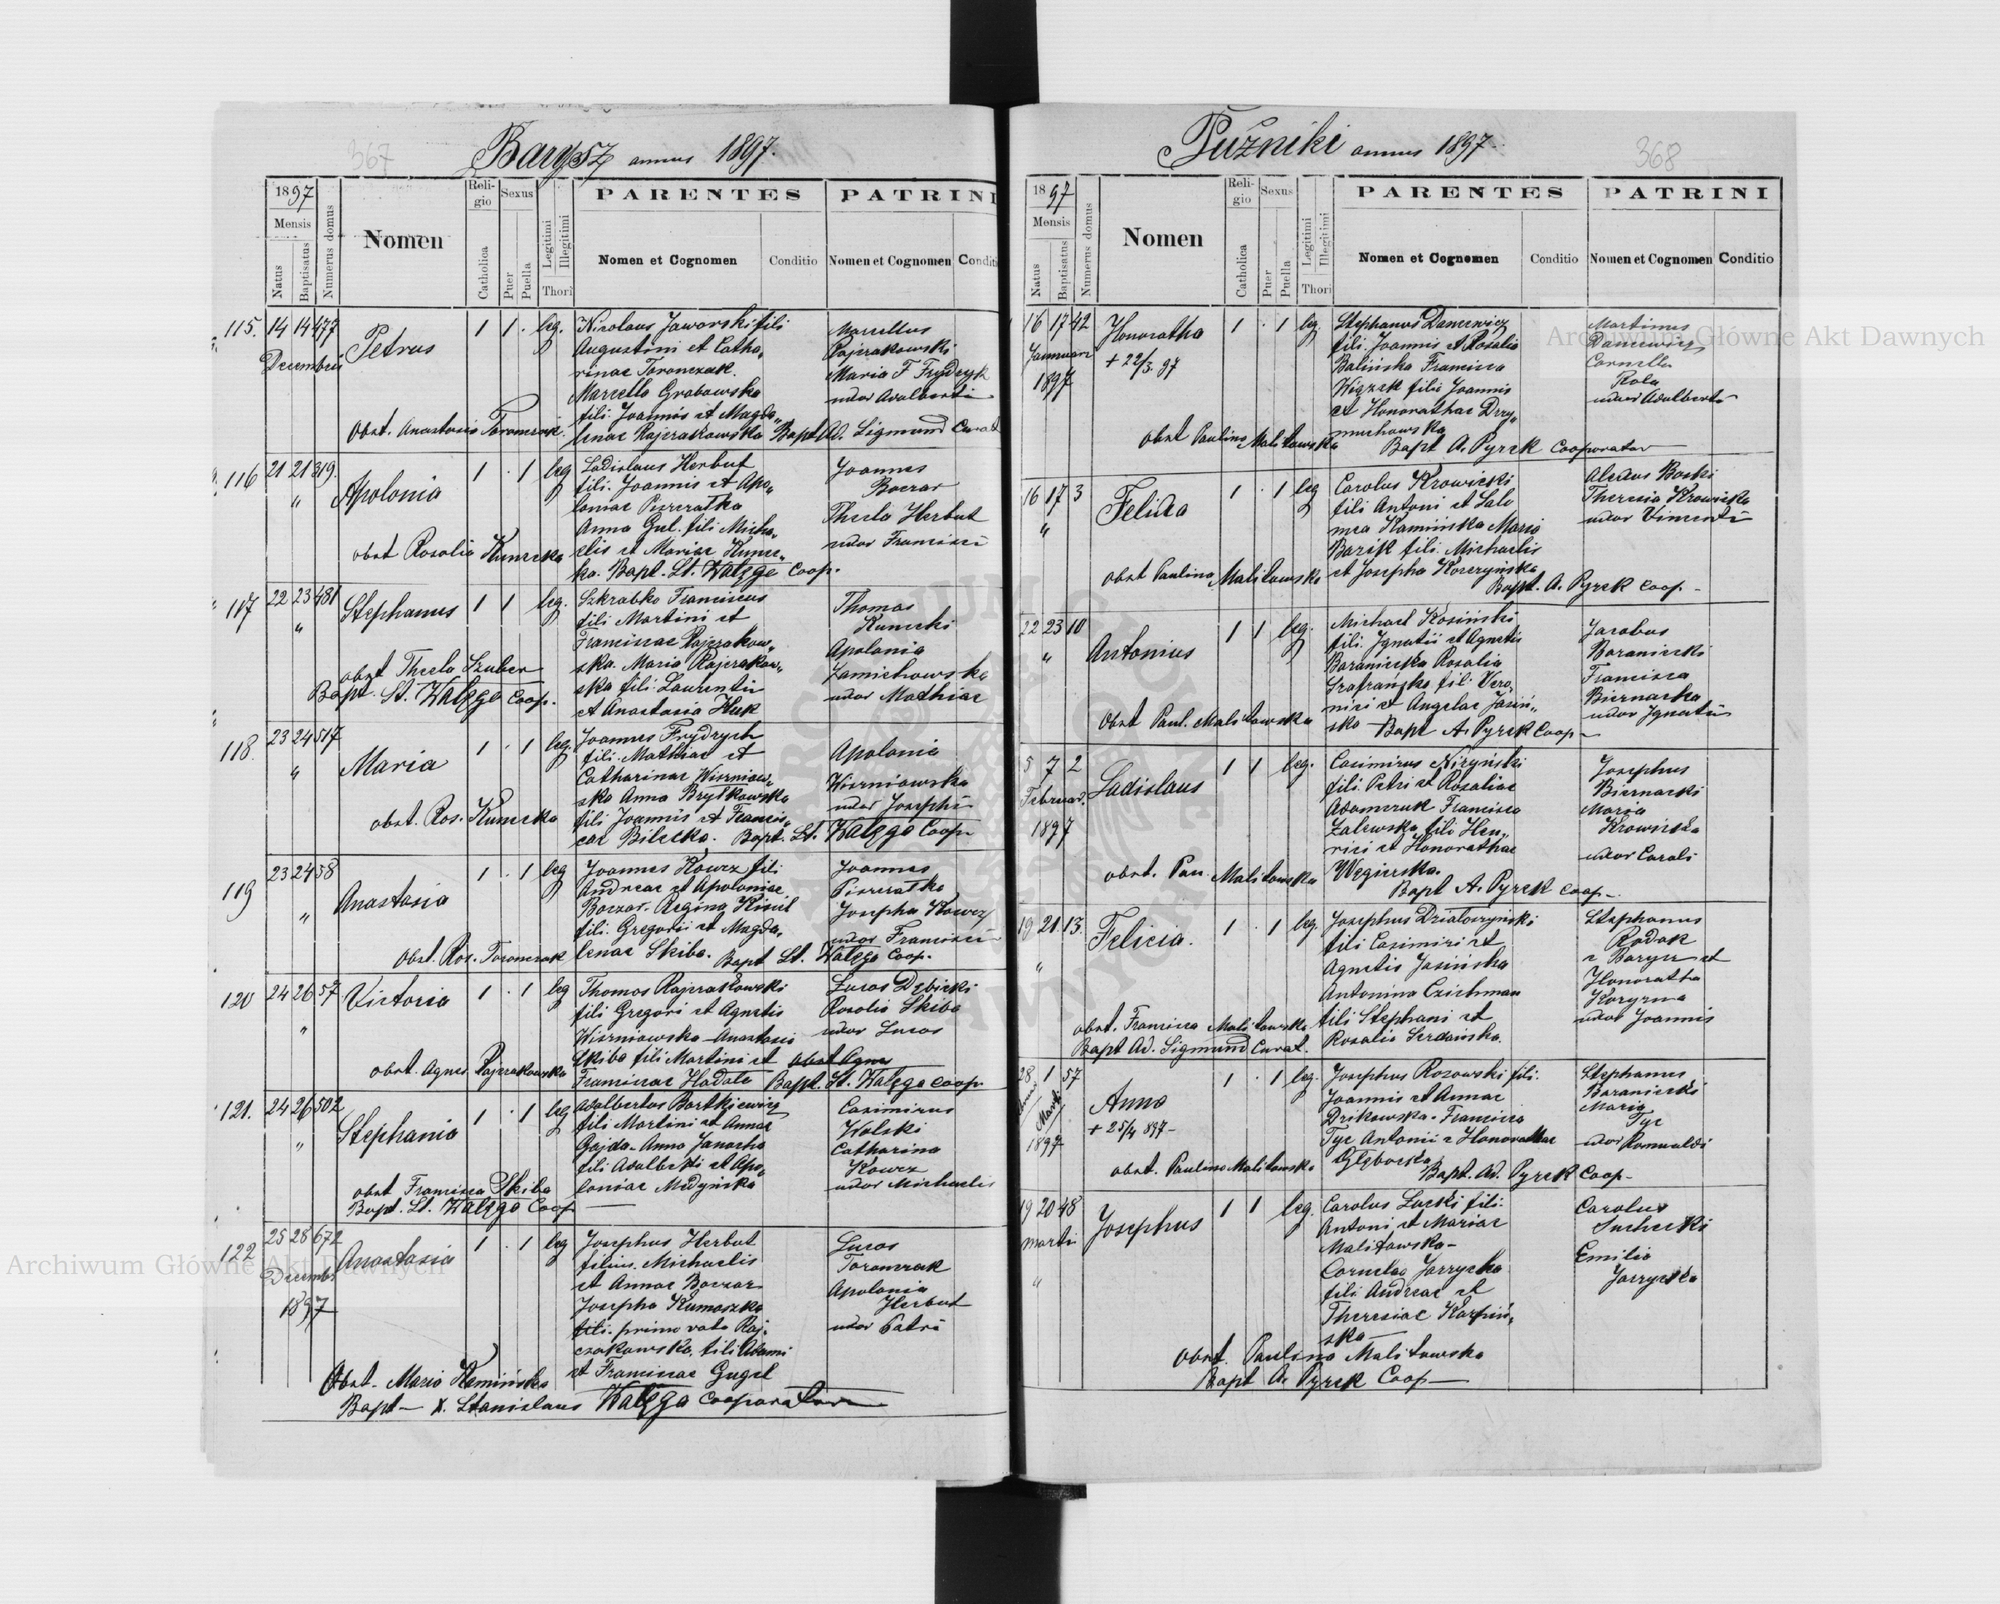 367
Barysz annus 1897.
1897
Mensis
Natus
Baptisatus
Numerus domus
Nomen
Religio
Catholica
Sexus
Puer
Puella
Legitimi
Illegitimi
Thori
PARENTES
Nomen et Cognomen
Conditio
PATRINI
Nomen et Cognomen
Conditio
115. 14 14 477 Petrus 1 1 . leg.
Decembris
Nicolaus Jaworski fili
Augustini et Catha,
rinae Toronczak.
Marcella Grabowska
fili. Joannis et Magda,
lenae Rajczakowska Bapt Ad. Sigmund Curat
Marcellus
Rajczakowski
Maria F Frydryk
uxor Adalberti
obst. Anastasia Toronczak.
116 21 21 319. Apolonia 1 . 1 leg
"
Ladislaus Herbut
fili. Joannis et Apo,
loniae Piszczatka
Anna Gul. fili Micha,
elis et Mariae Kunec,
ka. Bapt. St. Wałęga Coop.
Joannes
Boczar
Thecla Herbut
uxor Francisci
obst Rosalia Kunecka
117 22 23 481 Stephanus 1 1 leg.
"
Szkrabko Franciscus
fili Martini et
Franciscae Rajczakow,
ska. Maria Rajczakow,
ska fili. Laurentii
et Anastasia Huk
Thomas
Kunecki
Apolonia
Zamichowska
uxor Mathiae
obst Thecla Szuber
Bapt. St. Wałęga Coop.
118. 23 24 517 Maria 1 . 1 leg.
"
Joannes Frydrych
fili. Mathiae et
Catharinae Wiszniow,
ska Anna Brytkowska
fili Joannis et Francis,
cae Bilecka. Bapt. St. Wałęga Coop
Apolonia
Wiszniowska
uxor Josephi
obst. Ros. Kunecka
119 23 24 58 Anastasia 1 . 1 leg
"
Joannes Kowcz fili
Andreae et Apoloniae
Boczar. Regina Kisiel
fili. Gregorii et Magda,
lenae Skiba. Bapt St. Wałęga Coop.
Joannes
Piszczatka
Josepha Kowcz
uxor Francisci
obst. Ros. Toronczak
120 24 26 57 Victoria 1 . 1 leg
"
Thomas Rajczakowski
fili Gregori et Agnetis
Wiszniowska Anastasia
Skiba fili Martini et obst Agnes
Franciscae Hadała Bapt. St. Wałęga Coop
Lucas Dębicki
Rosalia Skiba
uxor Lucas
obst. Agnes Rajczakowska
121. 24 26 502 Stephania 1 . 1 leg
"
Adalbertus Bartkiewicz
fili Martini et Annae
Gajda. Anna Janocha
fili Adalberti et Apo,
loniae Medyńska
Casimirus
Wolski
Catharina
Kowcz
uxor Michaelis
obst Francisca Skiba
Bapt. St. Wałęga Coop
122 25 28 672 Anastasia 1 . 1 leg
Decembr
1897
Josephus Herbut
filius. Michaelis
et Annae Boczar
Josepha Kumoszka
fili. primo voto Raj,
czakowska, fili Adami
et Franciscae Gugel
Lucas
Toronczak
Apolonia
Herbut
uxor Petri
Obst. Maria Kamińska
Bapt — X. Stanislaus Wałęga Cooporator
368
Puźniki annus 1897.
1897
Mensis
Natus
Baptisatus
Numerus domus
Nomen
Religio
Catholica
Sexus
Puer
Puella
Legitimi
Illegitimi
Thori
PARENTES
Nomen et Cognomen
Conditio
PATRINI
Nomen et Cognomen
Conditio
16 17 42 Honoratha 1 . 1 leg.
Januari + 22/3. 97
1897
Stephanus Dancewicz
fili. Joannis et Rosalia
Balińska Francisca
Wiązek filii Joannis
et Honorathae Dzry,
muchowska
Bapt A. Pyrek Cooporator
Martinus
Dancewicz
Cornelia
Rola
uxor Adalberta
obst Paulina Malitowska
16 17 3 Felicia 1 . 1 leg
"
Carolus Krowicki
fili Antoni et Salo
mea Kamińska Maria
Bazik fili. Michaelis
et Josepha Korczyńska
Bapt. A. Pyrek Coop.
Aledus Boski
Theresia Krowicka
uxor Vincenti
obst Paulina Malitowska
22 23 10 Antonius 1 1 leg.
"
Michael Kosiński
fili. Ignatii et Agnetis
Baraniecka Rosalia
Szafrańska fili. Vero,
nici et Angelae Josiń,
ska Bapt A. Pyrek Coop
Jacobus
Baraniecki
Francisca
Biernacka
uxor Ignatii
Obst Paul. Malitowska
5 7 2 Ladislaus 1 1 leg.
Februar.
1897
Casimirus Niżyński
fili. Petri et Rosaliae
Adamczuk Francisca
Zalewska fili Hen,
rici et Honorathae
Węgierska.
Bapt A. Pyrek Coop
Josephus
Biernacki
Maria
Krowicka
uxor Caroli
obst. Pau. Malitowska
19 21 13. Felicia. 1 . 1 leg.
"
Josephus Działoszyński
fili Casimiri et
Agnetis Jasińska
Antonina Czichman
fili Stephani et
Rosalia Serdańska.
Stephanus
Radak
z Barysz et
Honoratha
Koryzma
uxor Joannis
obst. Francisca Malitowska
Bapt Ad. Sigmund Curat.
28 1 57 Anna 1 . 1 leg.
Marti + 25/4 897
1897
Josephus Rozowski fili.
Joannis et Annae
Dzikowska. Francisca
Tyc Antonii et Honorathae
Głębocka
Bapt. Ad. Pyrek Coop
Stephanus
Baraniecki
Maria
Tyc
uxor Romualdi
obst. Paulina Malitowska
19 20 48 Josephus 1 1 leg.
Marti
"
Carolus Łucki fili.
Antoni et Mariae
Malitowska
Cornelia Jazzycka
fili Andreae et
Theresiae Karpiń,
ska
Carolus
Suchecki
Emilia
Jazzycka
Obst. Paulina Malitowska
Bapt A. Pyrek Coop
Archiwum Główne Akt Dawnych
Archiwum Główne Akt Dawnych